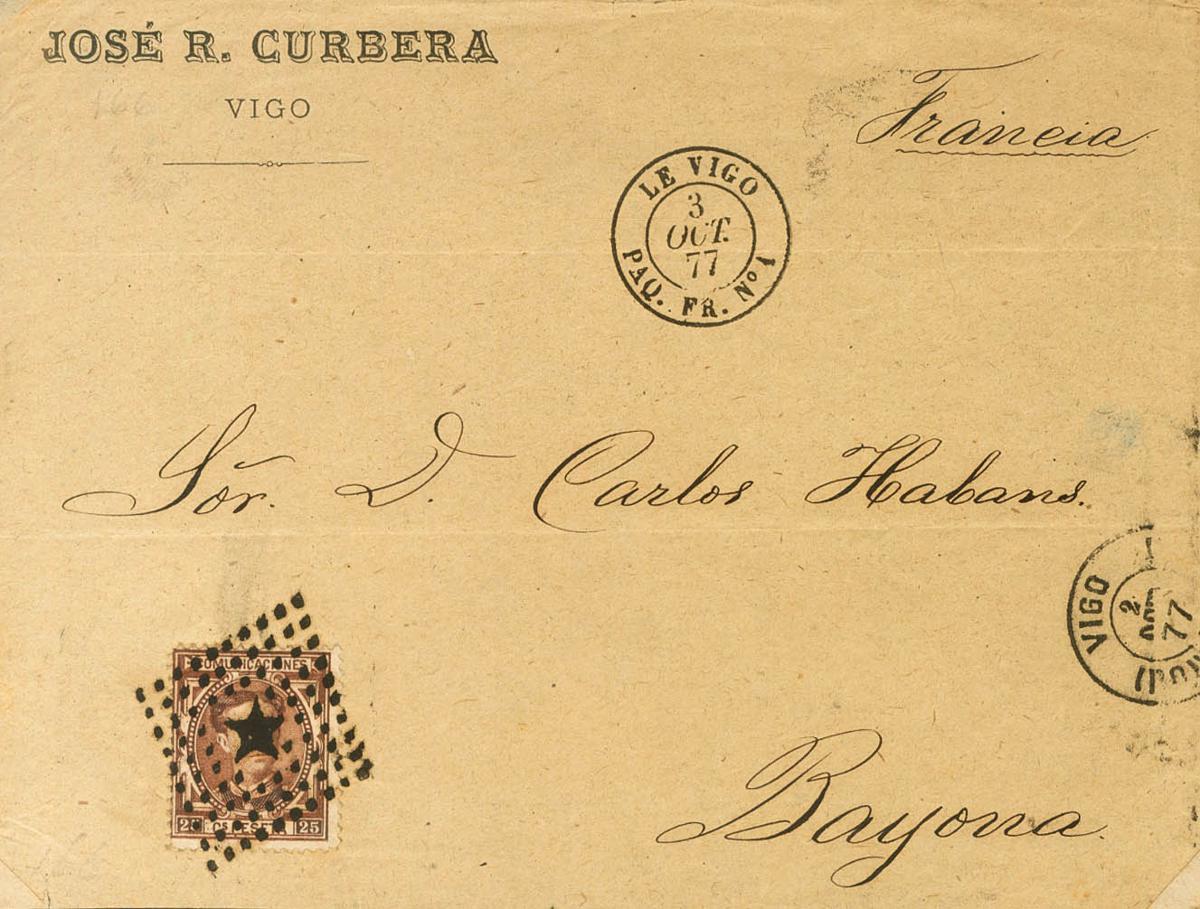 JOSÉ R. CURBERA
VIGO
Francia
LE VIGO
3
OCT.
77
PAQ. FR. Nº 1
Sõr. D. Carlos Habans.
VIGO
2
77
COMUNICACIONES
Cs PESETA 25
Bayona